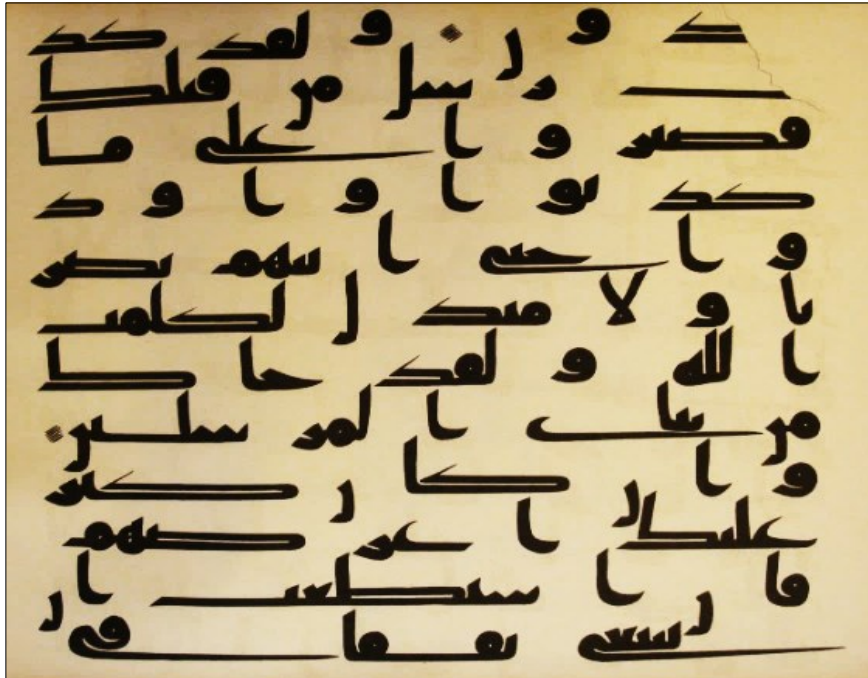 حدون ولقد كذ
بت رسل من قبلك
فصبروا على ما
كذبوا واوذ
وا حتى اتيهم نصر
نا ولا مبدل لكلمت
الله ولقد جاك
من نباى المرسلين
وان كان كبر
عليك اعرضهم
فان استطعت ان
تبتغى نفقا فى